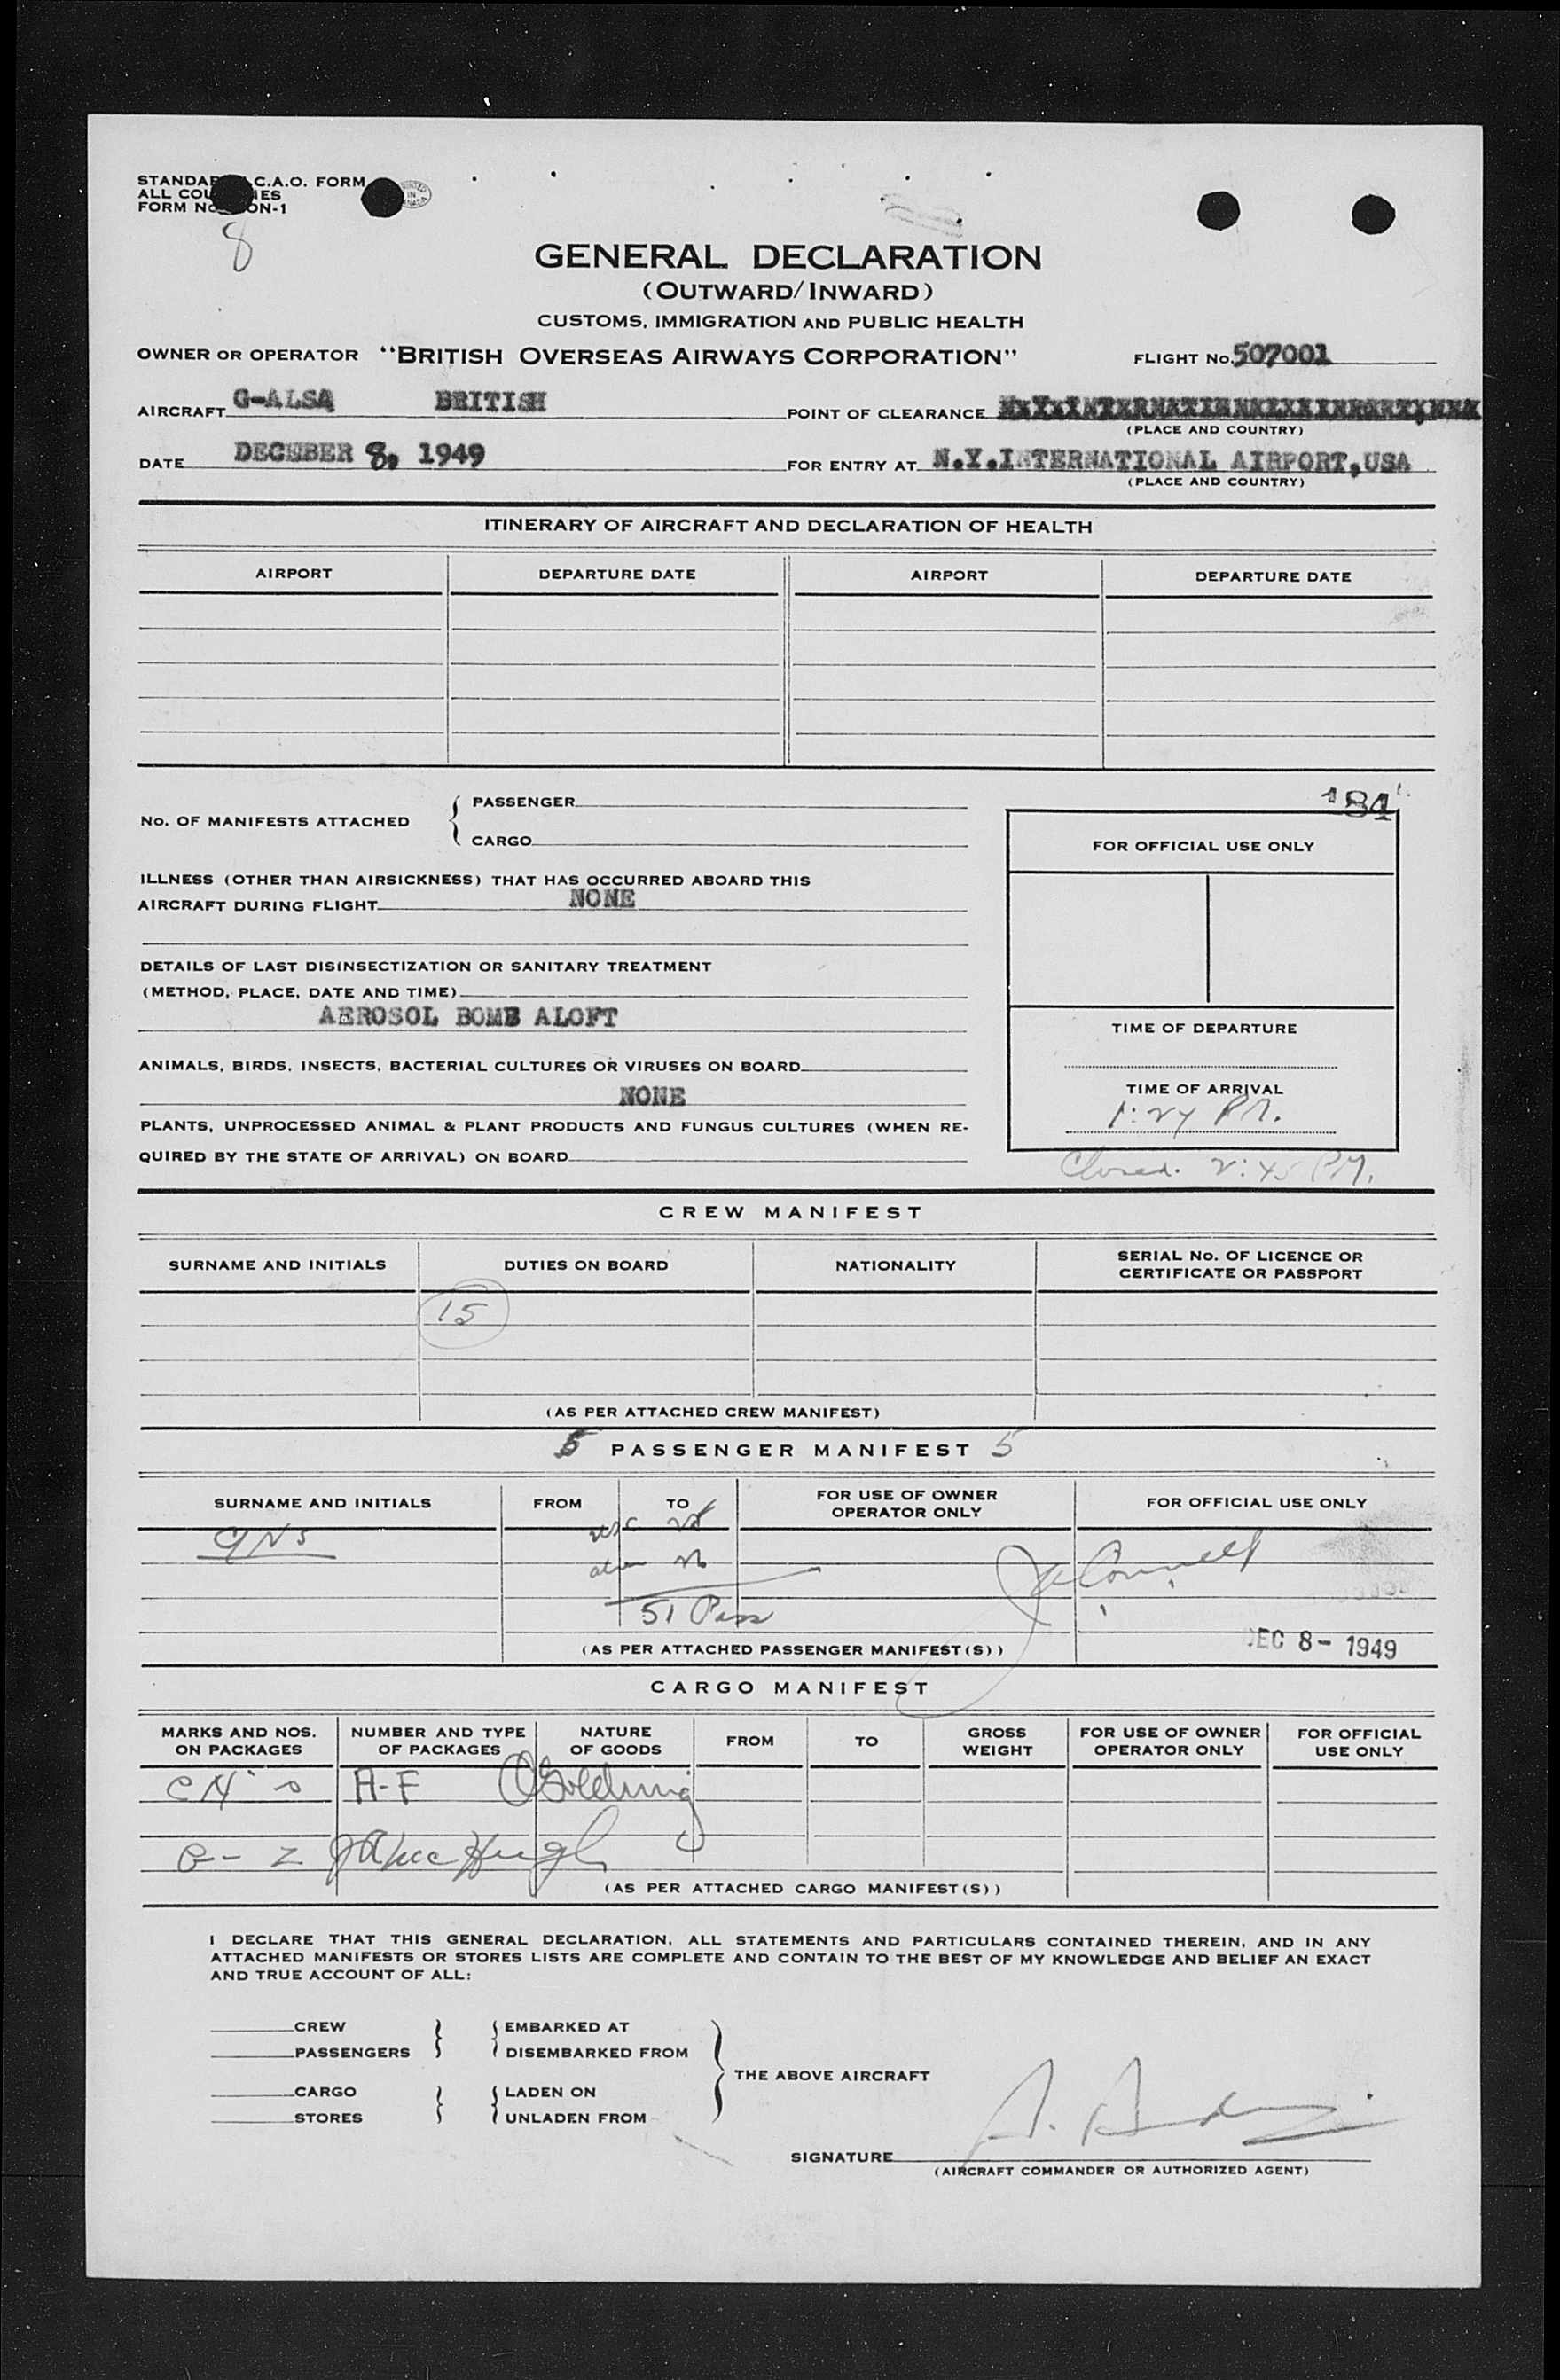 STANDARD I.C.A.O. FORM
ALL COUNTRIES
FORM No. ON-1
PRINTED IN CANADA
8
GENERAL DECLARATION
(OUTWARD/INWARD)
CUSTOMS, IMMIGRATION AND PUBLIC HEALTH
OWNER OR OPERATOR "BRITISH OVERSEAS AIRWAYS CORPORATION" FLIGHT No. 507001
AIRCRAFT G-ALSA BRITISH POINT OF CLEARANCE
(PLACE AND COUNTRY)
DATE DECEMBER 8, 1949 FOR ENTRY AT N.Y.INTERNATIONAL AIRPORT,USA
(PLACE AND COUNTRY)
ITINERARY OF AIRCRAFT AND DECLARATION OF HEALTH
AIRPORT DEPARTURE DATE AIRPORT DEPARTURE DATE
184
No. OF MANIFESTS ATTACHED { PASSENGER
CARGO
FOR OFFICIAL USE ONLY
ILLNESS (OTHER THAN AIRSICKNESS) THAT HAS OCCURRED ABOARD THIS
AIRCRAFT DURING FLIGHT NONE
DETAILS OF LAST DISINSECTIZATION OR SANITARY TREATMENT
(METHOD, PLACE, DATE AND TIME)
AEROSOL BOMB ALOFT
TIME OF DEPARTURE
ANIMALS, BIRDS, INSECTS, BACTERIAL CULTURES OR VIRUSES ON BOARD
NONE
TIME OF ARRIVAL
1:24 PM.
PLANTS, UNPROCESSED ANIMAL & PLANT PRODUCTS AND FUNGUS CULTURES (WHEN RE-
QUIRED BY THE STATE OF ARRIVAL) ON BOARD
Closed. 2:45 PM.
CREW MANIFEST
SURNAME AND INITIALS DUTIES ON BOARD NATIONALITY SERIAL No. OF LICENCE OR
CERTIFICATE OR PASSPORT
15
(AS PER ATTACHED CREW MANIFEST)
5 PASSENGER MANIFEST 5
SURNAME AND INITIALS FROM TO FOR USE OF OWNER
OPERATOR ONLY FOR OFFICIAL USE ONLY
51 Pass
(AS PER ATTACHED PASSENGER MANIFEST(S))
DEC 8- 1949
CARGO MANIFEST
MARKS AND NOS.
ON PACKAGES NUMBER AND TYPE
OF PACKAGES NATURE
OF GOODS FROM TO GROSS
WEIGHT FOR USE OF OWNER
OPERATOR ONLY FOR OFFICIAL
USE ONLY
A-F Golding
G-Z McHugh
(AS PER ATTACHED CARGO MANIFEST(S))
I DECLARE THAT THIS GENERAL DECLARATION, ALL STATEMENTS AND PARTICULARS CONTAINED THEREIN, AND IN ANY
ATTACHED MANIFESTS OR STORES LISTS ARE COMPLETE AND CONTAIN TO THE BEST OF MY KNOWLEDGE AND BELIEF AN EXACT
AND TRUE ACCOUNT OF ALL:
CREW } { EMBARKED AT
PASSENGERS DISEMBARKED FROM
THE ABOVE AIRCRAFT
CARGO } { LADEN ON
STORES UNLADEN FROM
SIGNATURE
(AIRCRAFT COMMANDER OR AUTHORIZED AGENT)